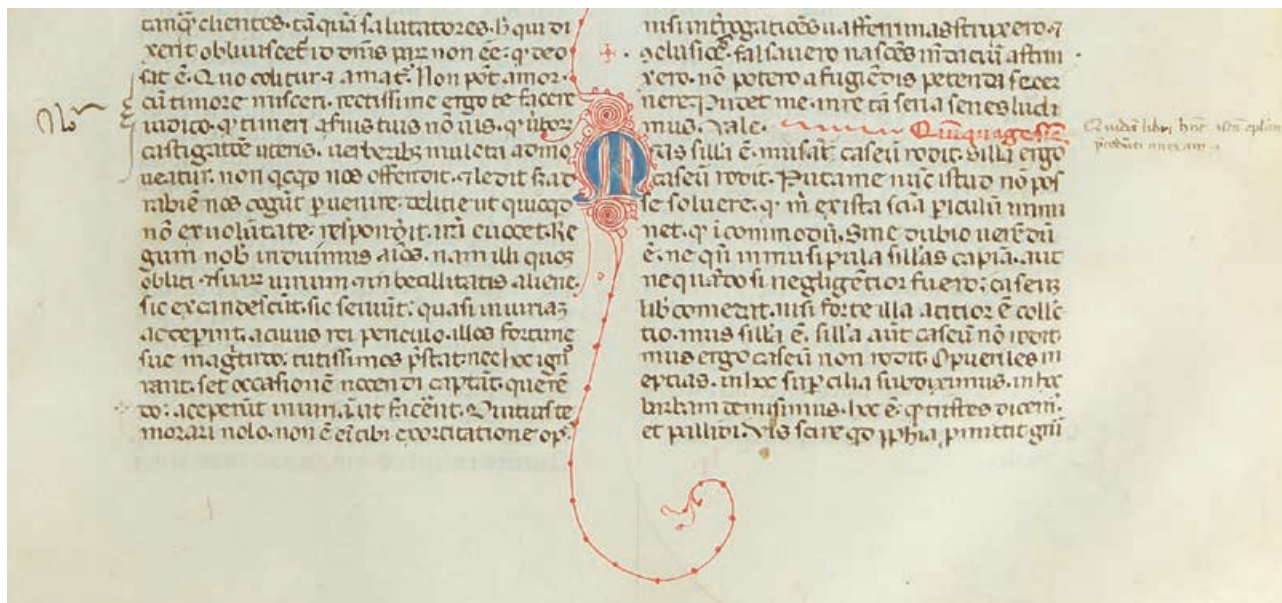 tanq̃ clientes. tã quã salutatores. h̃ qui di
xerit obliuiscet̃ id dñis parũ non eẽ: q̃ deo
sat ẽ. Quo colitur ⁊ amat̃. Non pot̃ amor.
cũ timore misceri. rectissime ergo te facere
iudico. q̃ timeri a ſeruis tuis nõ uis. q̃ ũboꝝ
castigatiõe uteris. uerberibꝫ muleta admo
ueatur. non qcqd nos offendit. ⁊ ledit sꝫ ad
rabiẽ nos cogũt ꝑuenire. delitie ut quicqd
nõ ex uolũtate. respondit. irã euocet. Re
gum nob̃ induimus aĩos. nam illi quoꝫ
obliti ⁊ suaꝝ uirium ⁊ inbecillitatis aliene.
sic excandescũt. sic seuiũt. quasi iniuriaꝫ
acceperint. a cuius rei periculo. illos fortune
sue magr̃tudo. tutissimos p̃stat. nec hoc igno
rant. set occasionẽ nocendi captãt querẽ
do: aceperũt iniuriam ut facẽent. Diutius te
morari nolo. non ẽ eĩ tibi exortatione op̃.
nisi int̃rogatiões uafferrimas struxero. ⁊
ↄclusiõe. falsa uero nascẽs mẽdaciũ astrin
xero. nõ potero a fugiẽdis petenda secer
nere: Pudet me. in re tã seria senes ludi
mus. Vale. Quĩquagesĩa
Mus silla ẽ. mus aũt caseũ rodit. silla ergo
caseũ rodit. Puta me nũc istud nõ pos
se soluere. q̃ m̃ ex ista sciã periculũ immi
net. q̃ icommodũ. Sine dubio uerẽdũ
ẽ. ne qñ in musipula sillãs capiã. aut
ne quãdo si negligẽtior fuero: caseus
lib̃ comedat. nisi forte illa acutior ẽ collec
tio. mus silla ẽ. silla aũt caseũ nõ rodit.
mus ergo caseũ non rodit. O pueriles in
eptias. in hoc suꝑcilia subdiximus. in hoc
barbam demisimus. hoc ẽ. q̃ tristes docem̃.
et pallidi. Vis scire qd ph̃ia ꝑmittit gñi
Quidã libri hñc